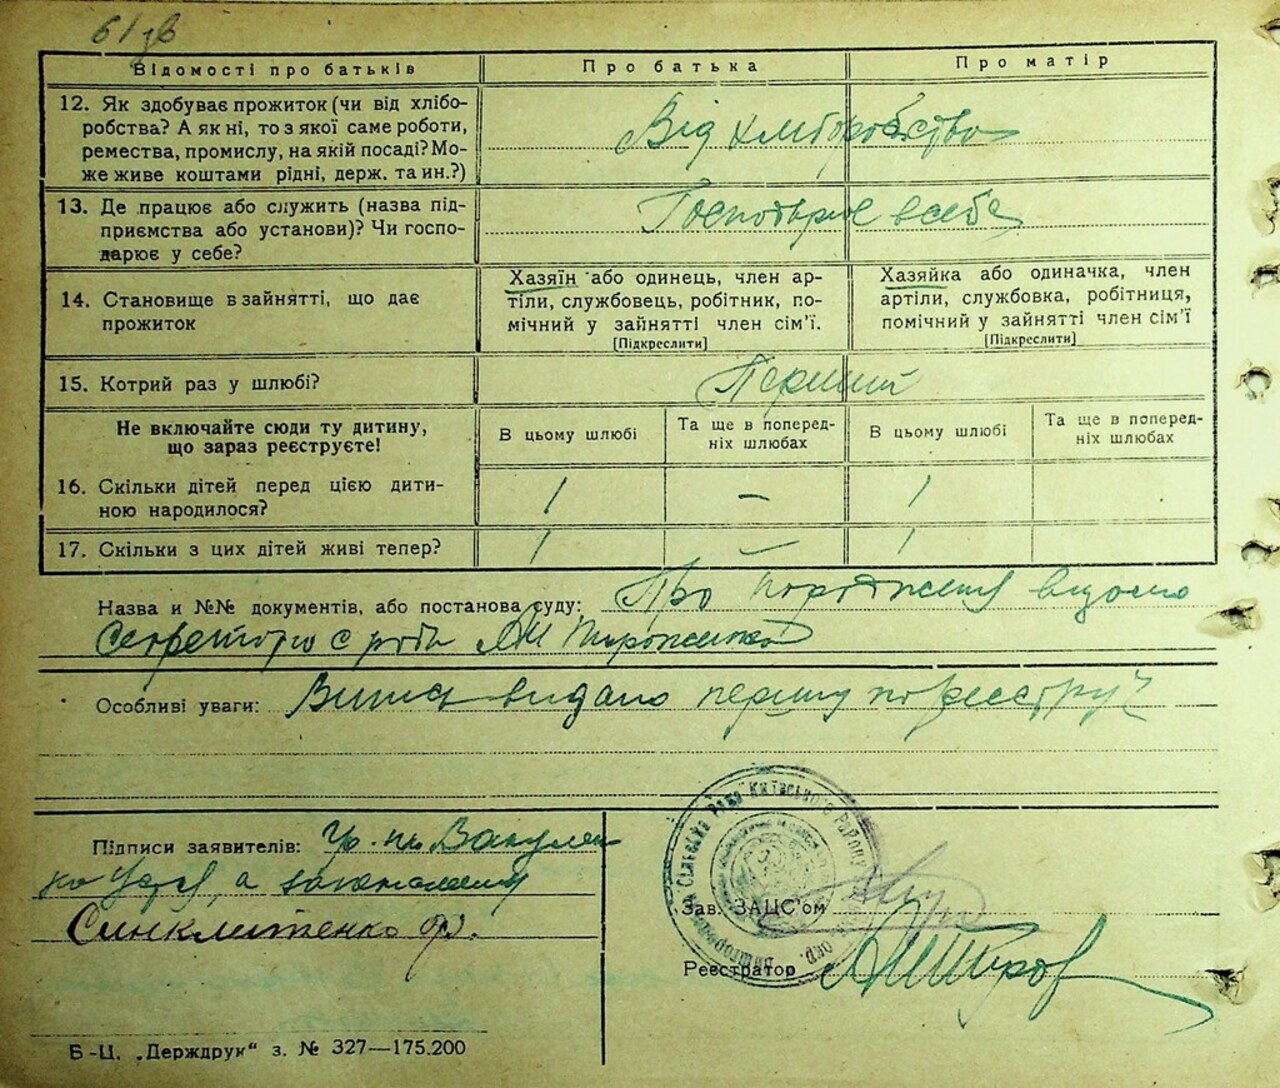 61 зв
Відомості про батьків
Про батька
Про матір
12. Як здобуває прожиток (чи від хлібо-
робства? А як ні, то з якої саме роботи,
ремества, промислу, на якій посаді? Мо-
же живе коштами рідні, держ. та ин.?)
Від хліборобства
13. Де працює або служить (назва під-
приємства або установи)? Чи госпо-
дарює у себе?
Господарює в себе
14. Становище в зайнятті, що дає
прожиток
Хазяїн або одинець, член ар-
тіли, службовець, робітник, по-
мічний у зайнятті член сім'ї.
[Підкреслити]
Хазяйка або одиначка, член
артіли, службовка, робітниця,
помічний у зайнятті член сім'ї
[Підкреслити]
15. Котрий раз у шлюбі?
Перший
Не включайте сюди ту дитину,
що зараз реєструєте!
В цьому шлюбі
Та ще в поперед-
ніх шлюбах
В цьому шлюбі
Та ще в поперед-
ніх шлюбах
16. Скільки дітей перед цією дити-
ною народилося?
1
–
1
17. Скільки з цих дітей живі тепер?
1
–
1
Назва и №№ документів, або постанова суду: Про народження відомо
Секретарю с ради
Особливі уваги: видано першу по реєстру
Підписи заявителів: Гр. Вакулен
ко а за
Синклитенко
Сільська Рада Київського району
Зав. ЗАЦС'ом
Реєстратор
Б-Ц. „Держдрук“ з. № 327—175.200